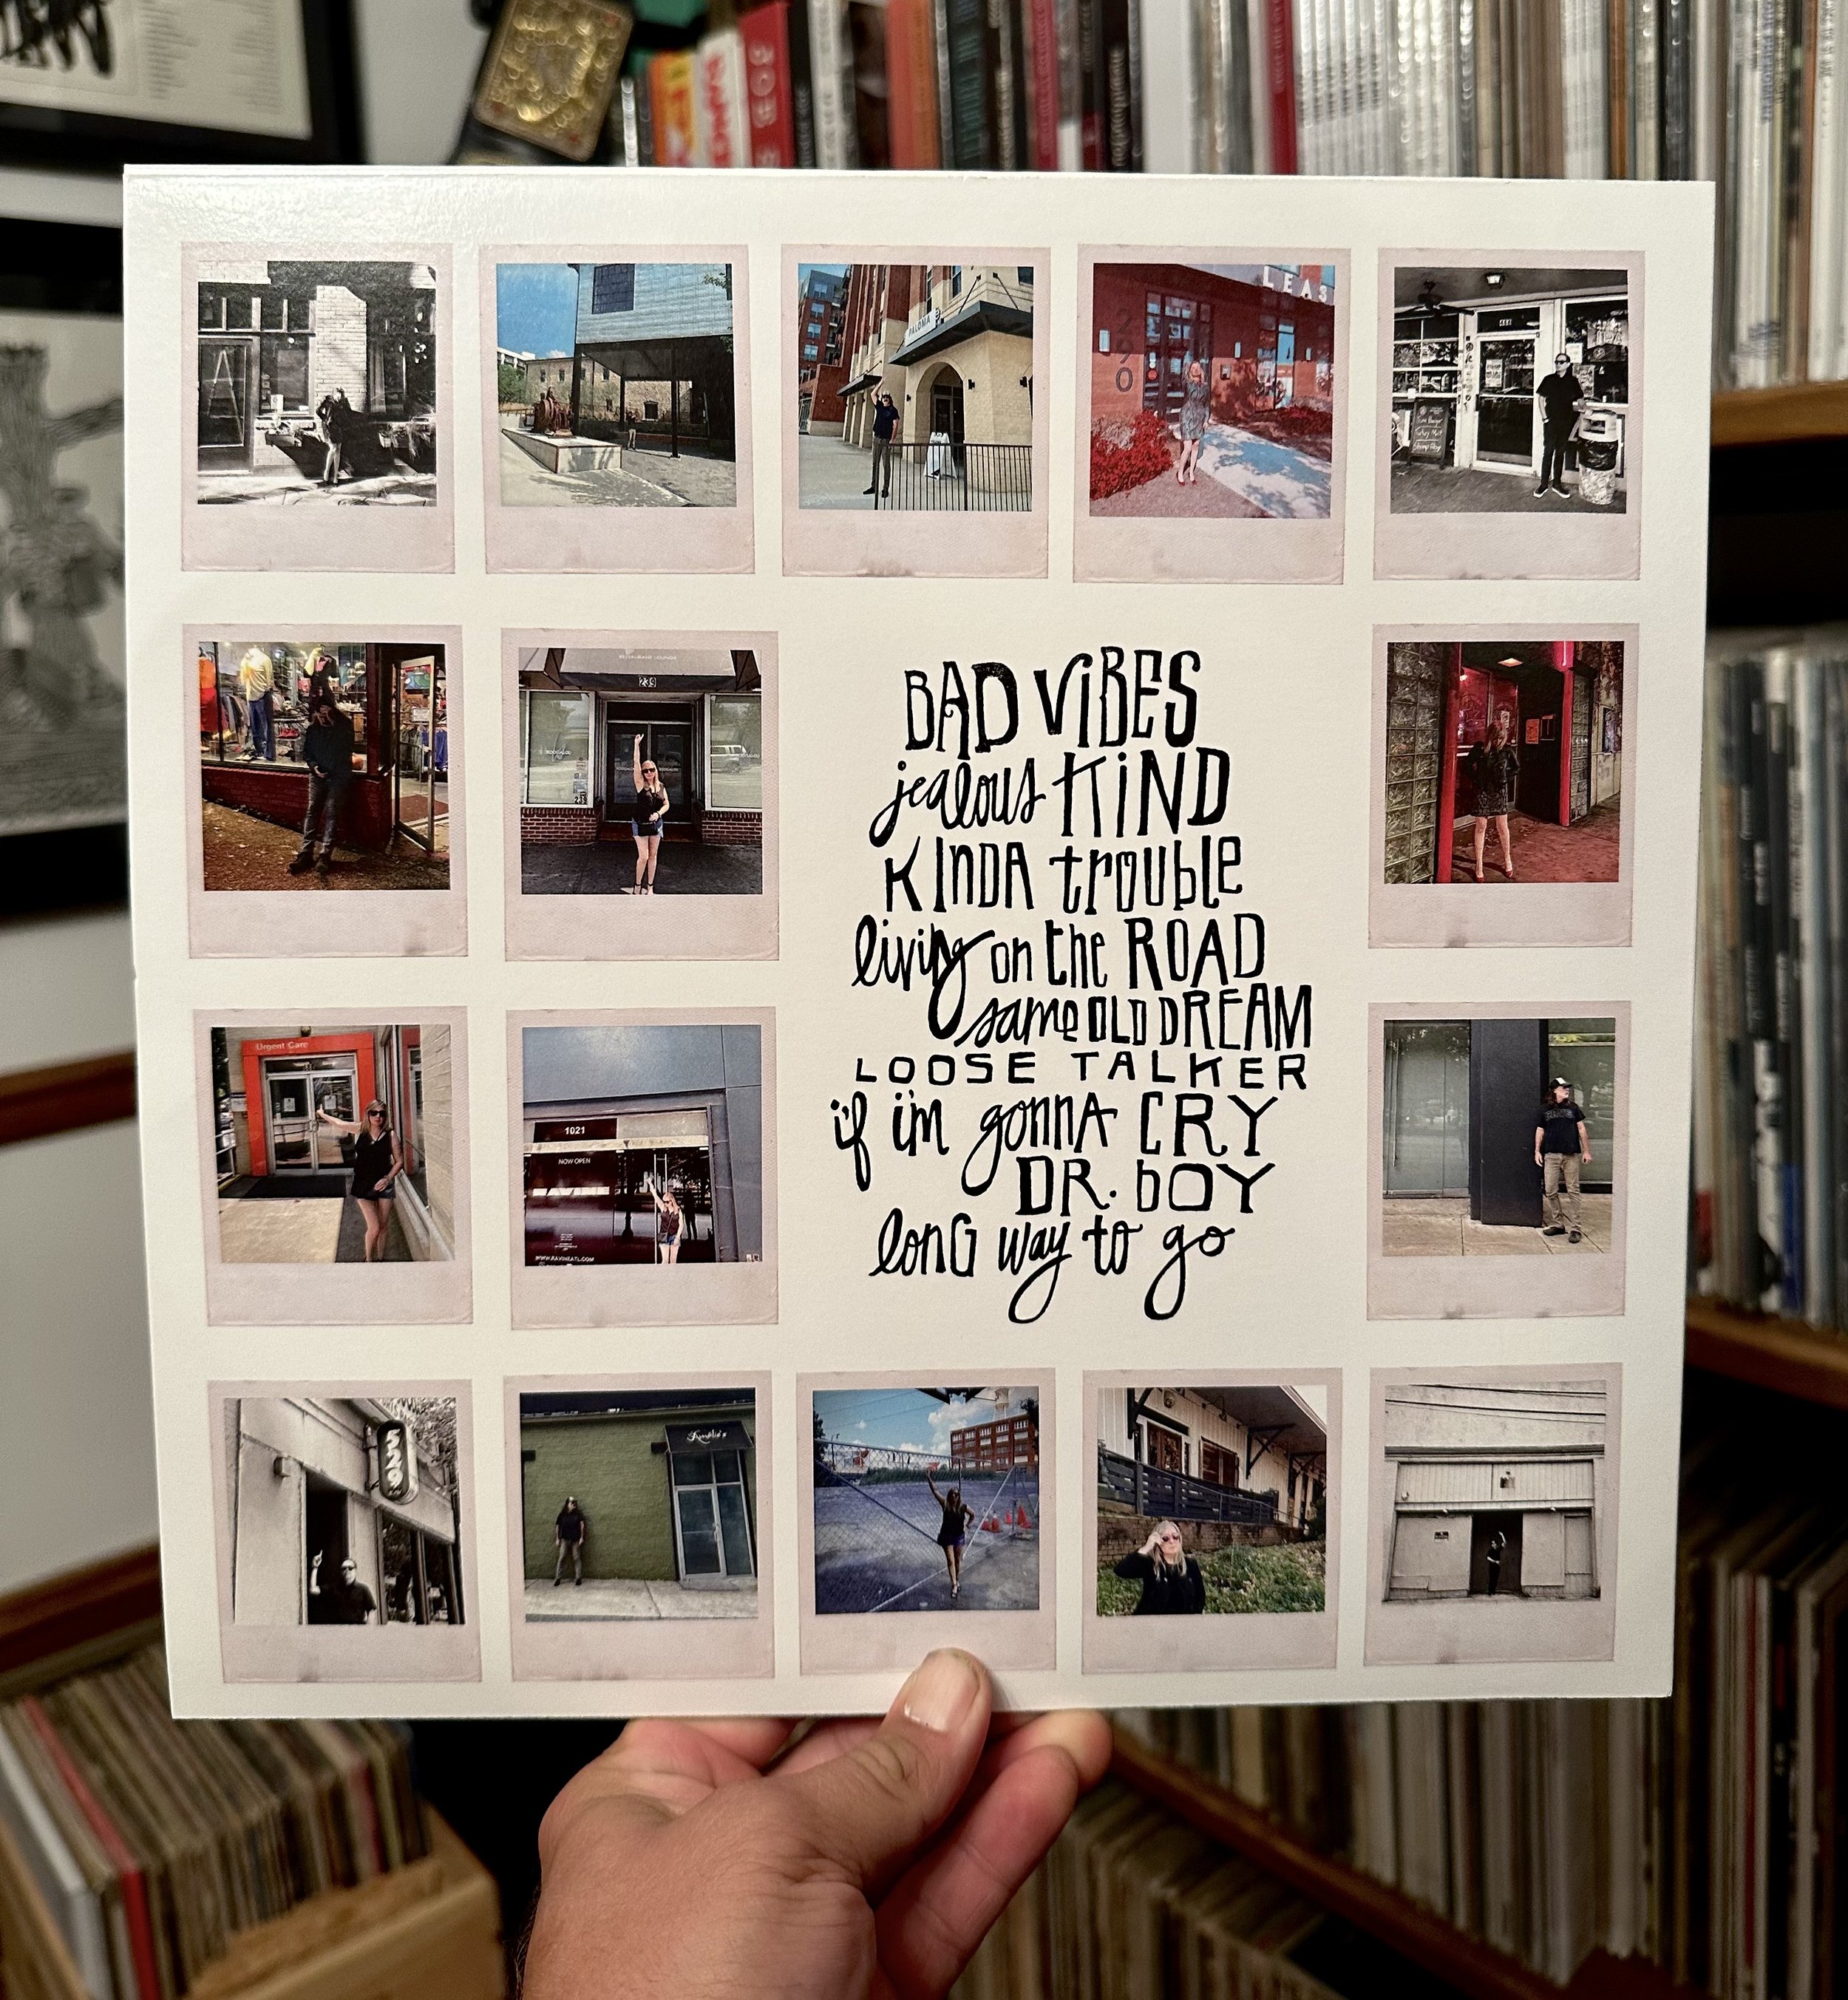 LEAS
290
PALOMA
468
239
BAD ViBES
jealous KiND
KINDA trouble
living on the ROAD
same OLD DREAM
LOOSE TALKER
if i'm gonnA CRY
DR. bOY
lonG way to go
Urgent Care
1021
NOW OPEN
WWW.RAVINEATL.COM
529